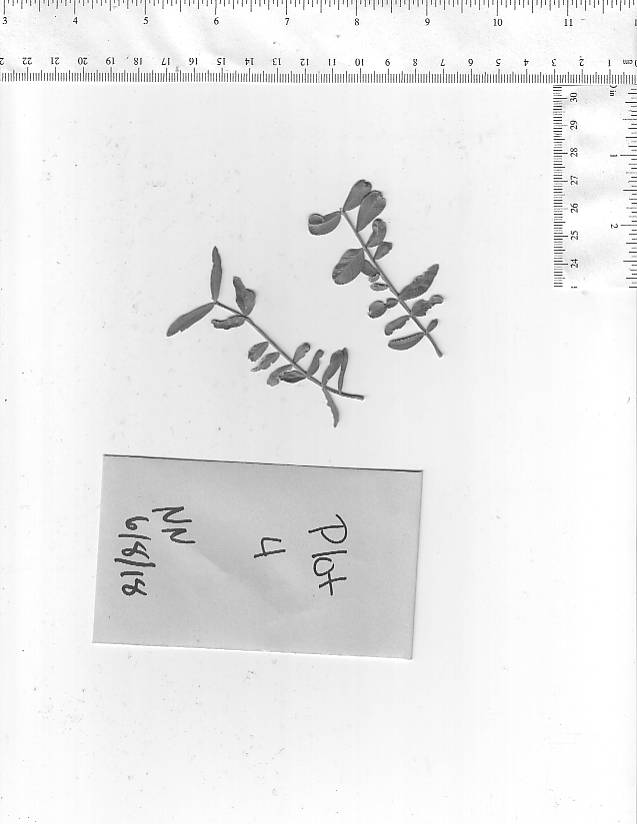 3 4 5 6 7 8 9 10 11
22 21 20 19 18 17 16 15 14 13 12 11 10 9 8 7 6 5 4 3 2 1 cm
in 1 2
30 29 28 27 26 25 24
Plot
4
NN
6/8/18